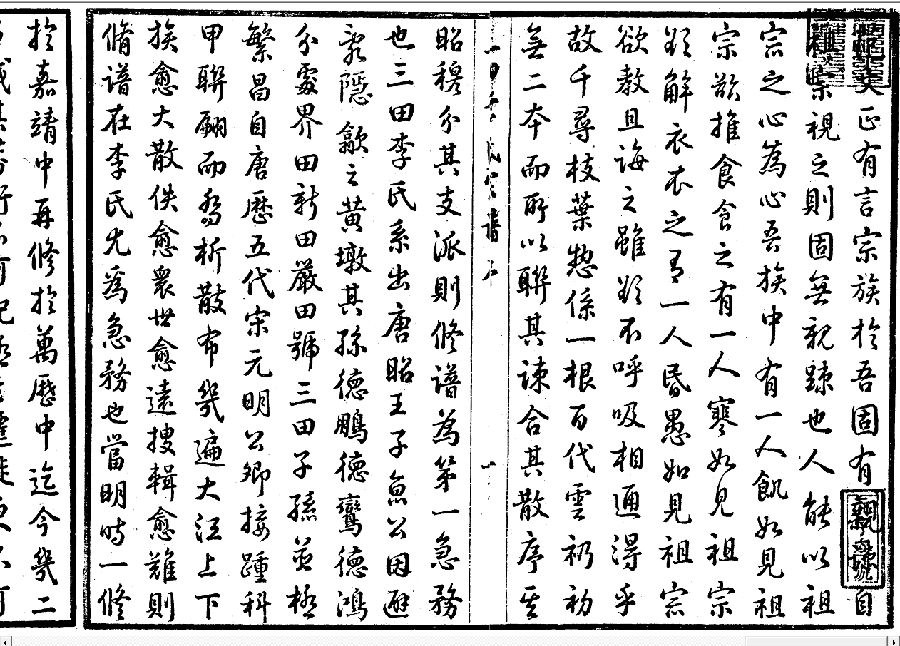 正有言宗族於吾固有親疎自
祖宗視之則固無親踈也人能以祖
宗之心為心吾族中有一人飢如見祖
宗欲推食食之有一人寒如見祖宗
欲解衣衣之有一人昏愚如見祖宗
欲教且誨之雖欲不呼吸相通得乎
故千尋枝葉總係一根百代雲礽初
無二本而所以聯其踈合其散序其
昭穆分其支派則修譜為第一急務
也三田李氏系出唐昭王子魚公因避
亂隱歙之黃墩其孫德鵬德鸞德鴻
分處界田新田嚴田號三田子孫並極
繁昌自唐歷五代宋元明公卿接踵科
甲聯翩而析散布幾遍大江上下
族愈大散佚愈眾世愈遠搜輯愈難則
脩譜在李氏尤為急務也當明時一修
於嘉靖中再修於萬歷中迄今幾二